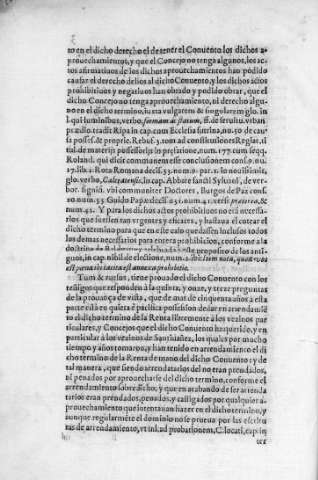 to en el dicho derecho el de tener el Conuento los dichos a-
prouechamientos, y que el Concejo no tenga algunos, los ac-
tos afirmatiuos de los dichos aprouechamientos han podido
causar el derecho dellos al dicho Conuento, y los dichos actos
prohibitiuos y negatiuos han obrado y podido obrar, que el
dicho Concejo no tenga aprouechamiento, ni derecho algu-
no en el dicho termino, iuxta vulgatam & singularem glo. in
l. qui luminibus, verbo, formam & statum, ff. de seruitu. vrban.
prædio. tradit Ripa in cap. cum Ecclesia sutrina, no. 50 de cau-
sa posses. & proprie. Rebuf.
Roland. qui dicit communem esse conclusionem
17. lib. 2. Rota Romana decis. 35. num. 9. par. 1. in nouissimis,
glo. verbo, in cap. Abbate sancti Syluani, de ver-
bor. signifi. vbi communiter Doctores, Burgos de Paz cons.
10 num. 35 Guido Papæ decis. 631. num. 41. versi. præterea, &
num. 42. Y para los dichos actos prohibitiuos no era necessa-
rio que fuessen tan vrgentes y eficazes, y bastaua el cotear el
dicho termino para que en este caso quedassen inclusos todos
los demas necessarios para entera prohibicion, conforme a la
este proposito de los anti-
guos, in cap. nihil de electione, num. 2. ibi:
est
Tum & rursus, tiene prouado el dicho Conuento con los
testigos que responden à la quinta, y onze, y treze preguntas
de la prouança de vista, que de mas de cinquenta años a esta
parte està en quieta & pacifica possession de dar en arrendamiẽ
to el dicho termino de la Renta libremente à los vezinos par
ticulares, y Concejos que el dicho Conuento ha querido, y en
particular à los vezinos de los quales por mucho
tiempo y años tomaron, y han tenido en arrendamiento el di
cho termino de la Renta de mano del dicho Conuento: y de
tal manera, que siendo arrendatarios del no eran prendados,
ni penados por aprouecharse del dicho termino, conforme el
arrendamiento sobredicho, y que en acabando de ser arrenda
tarios eran prendados, penados, y castigados por qualquier a-
prouechamiento que intentauan hazer en el dicho termino, y
aunque regularmẽte el dominio no se prueua por las escritu
ras de arrendamiento, vt in l. ad probationem, C. locati, cap. in